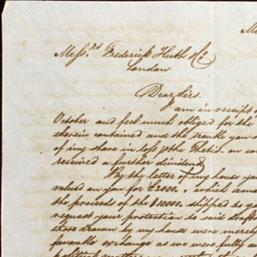 Messrs Frederick Huth & Co
London
Dear Sirs.
I am in receipt
October and feel much obliged for the
therein contained and the trouble you
of my share in loss p the Thetis on
received a further dividend
By the letter of my house you
valued on you for £2000.,, which
the proceeds of the $10000 shipped to
request your protection to said
those drawn by my house were merely
favorable exchange as we were fully